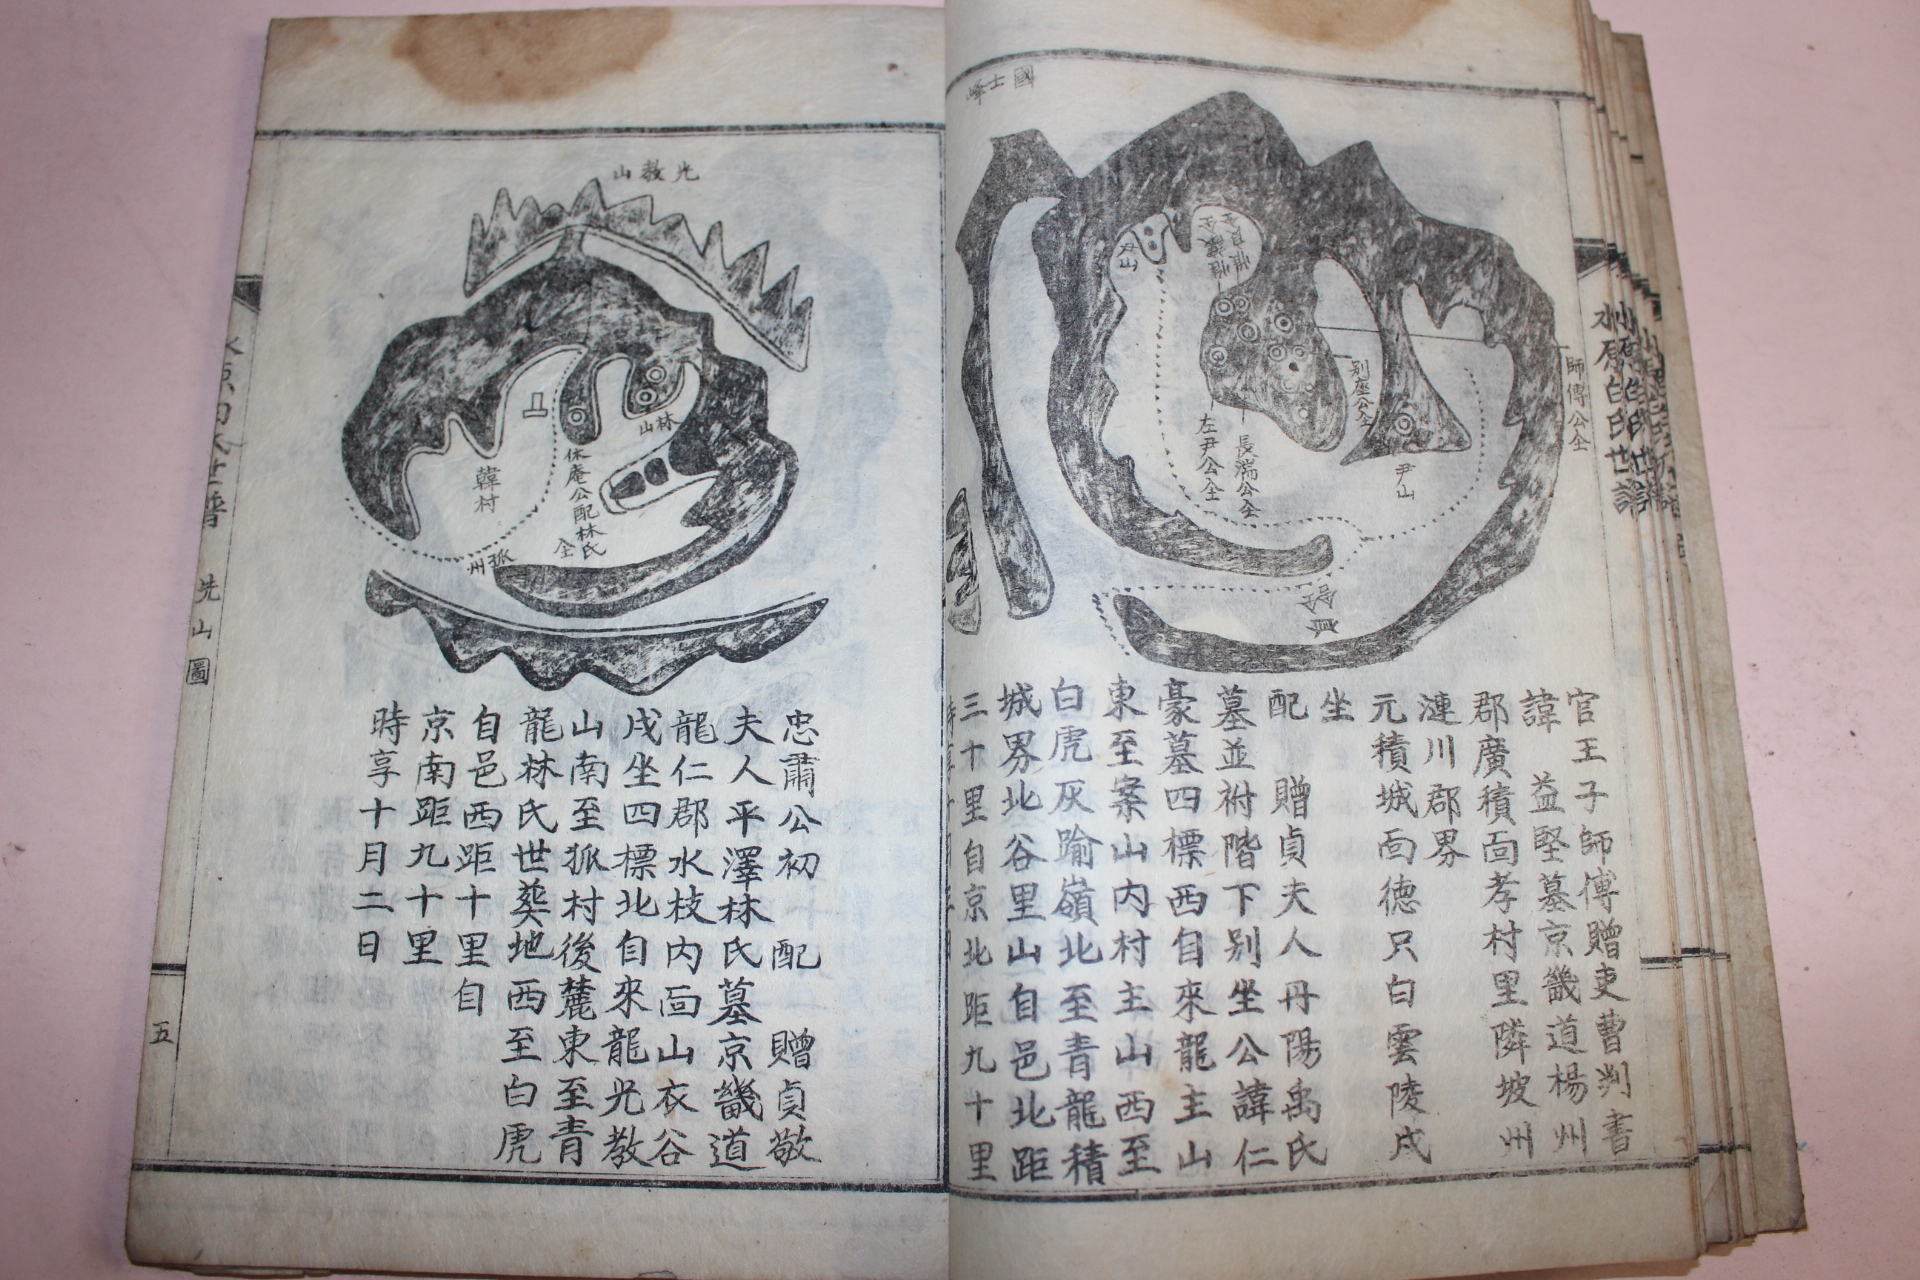 國士峰
師傅公仝
別座公仝
尹山
長湍公仝
左尹公仝
官王子師傅贈吏曹判書
諱　益堅墓京畿道楊州
郡廣積面孝村里隣坡州
漣川郡界
元積城面德只白雲陵戌
坐
配　贈貞夫人丹陽禹氏
墓並祔階下別坐公諱仁
豪墓四標西自來龍主山
東至案山內村主山西至
白虎灰踰嶺北至青龍積
城界北谷里山自邑北距
三十里自京北距九十里
水原白氏世譜
光教山
林山
休庵公配林氏
仝
韓村
孤州
忠肅公初　配　贈貞敬
夫人平澤林氏墓京畿道
龍仁郡水枝內面山衣谷
戌坐四標北自來龍光教
山南至孤村後麓東至青
龍林氏世葬地西至白虎
自邑西距十里自
京南距九十里
時享十月二日
水原白氏世譜　先山圖　五